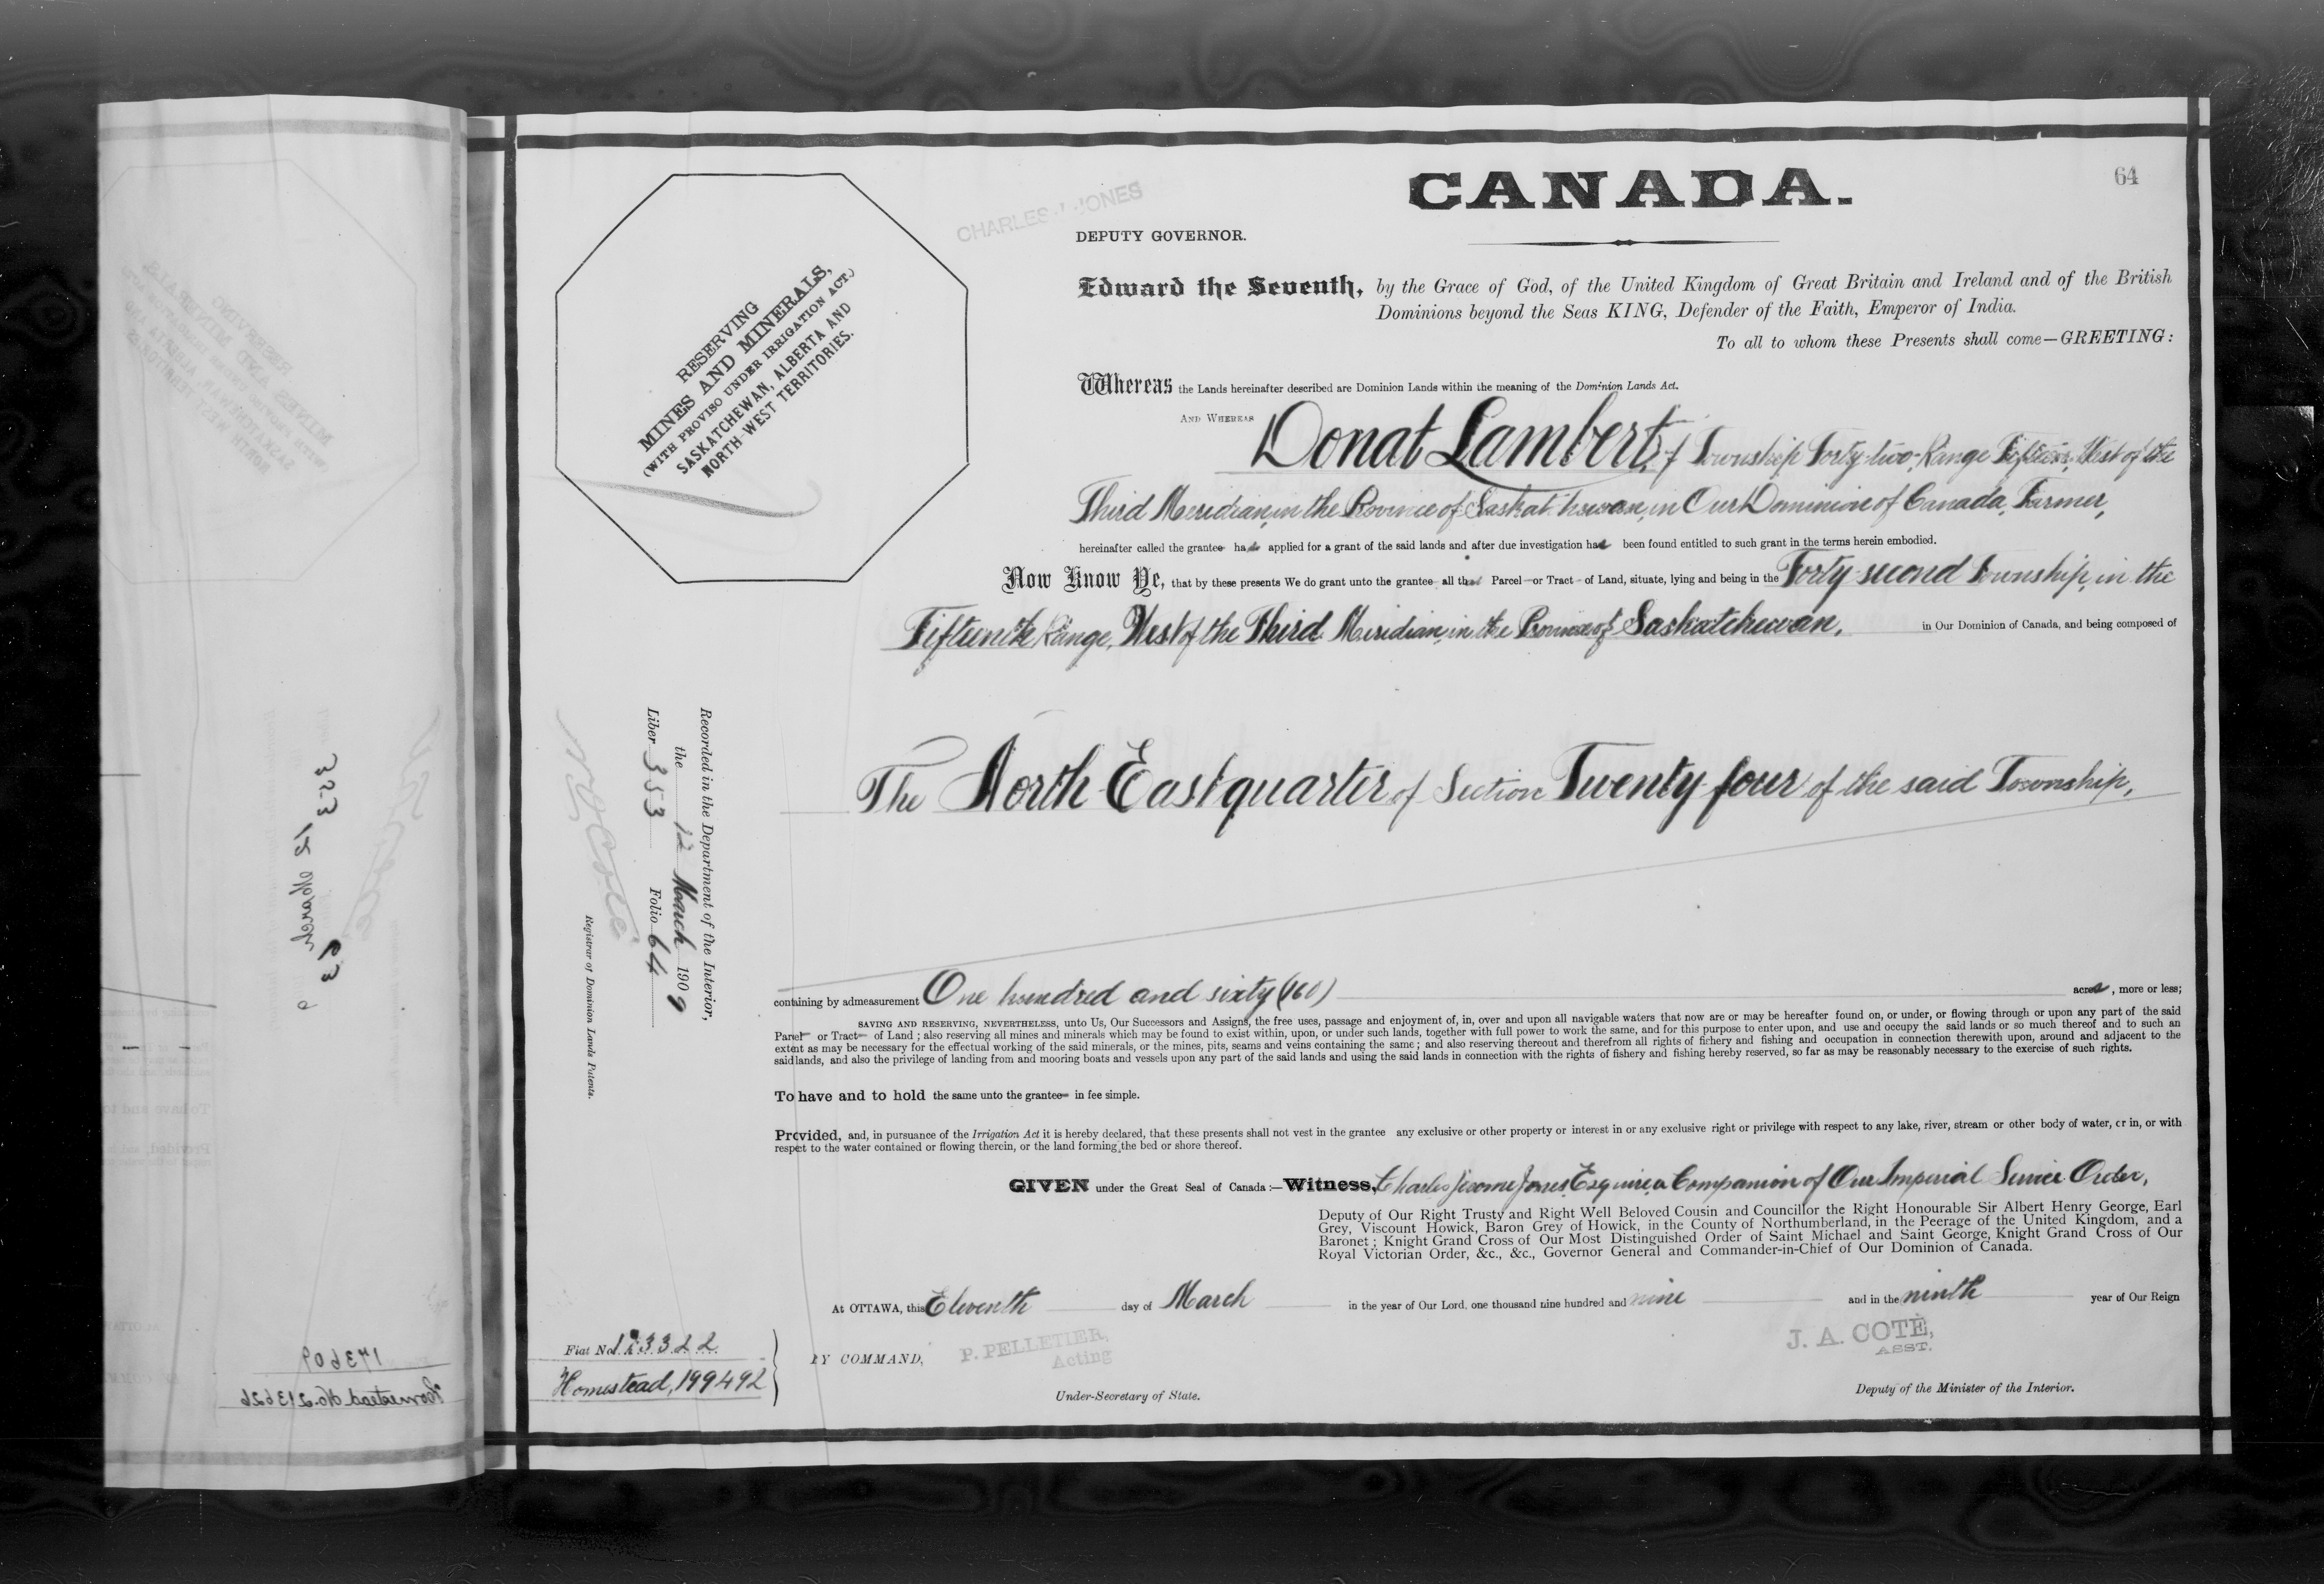 CANADA.
64
CHARLES J. JONES
DEPUTY GOVERNOR.
Edward the Seventh, by the Grace of God, of the United Kingdom of Great Britain and Ireland and of the British
Dominions beyond the Seas KING, Defender of the Faith, Emperor of India.
To all to whom these Presents shall come—GREETING:
RESERVING
MINES AND MINERALS,
(WITH PROVISO UNDER IRRIGATION ACT.)
SASKATCHEWAN, ALBERTA AND
NORTH-WEST TERRITORIES.
Whereas the Lands hereinafter described are Dominion Lands within the meaning of the Dominion Lands Act.
AND WHEREAS Donat Lambert, of Township Forty-two, Range Fifteen, West of the
Third Meridian, in the Province of Saskatchewan, in Our Dominion of Canada, Farmer,
hereinafter called the grantee has applied for a grant of the said lands and after due investigation has been found entitled to such grant in the terms herein embodied.
Now Know Ye, that by these presents We do grant unto the grantee all that Parcel or Tract of Land, situate, lying and being in the Forty second Township, in the
Fifteenth Range, West of the Third Meridian, in the Province of Saskatchewan, in Our Dominion of Canada, and being composed of
The North East quarter of Section Twenty four of the said Township,
containing by admeasurement One hundred and sixty (160) acres, more or less;
SAVING AND RESERVING, NEVERTHELESS, unto Us, Our Successors and Assigns, the free uses, passage and enjoyment of, in, over and upon all navigable waters that now are or may be hereafter found on, or under, or flowing through or upon any part of the said
Parcel or Tract of Land ; also reserving all mines and minerals which may be found to exist within, upon, or under such lands, together with full power to work the same, and for this purpose to enter upon, and use and occupy the said lands or so much thereof and to such an
extent as may be necessary for the effectual working of the said minerals, or the mines, pits, seams and veins containing the same ; and also reserving thereout and therefrom all rights of fishery and fishing and occupation in connection therewith upon, around and adjacent to the
said lands, and also the privilege of landing from and mooring boats and vessels upon any part of the said lands and using the said lands in connection with the rights of fishery and fishing hereby reserved, so far as may be reasonably necessary to the exercise of such rights.
To have and to hold the same unto the grantee in fee simple.
Provided, and, in pursuance of the Irrigation Act it is hereby declared, that these presents shall not vest in the grantee any exclusive or other property or interest in or any exclusive right or privilege with respect to any lake, river, stream or other body of water, or in, or with
respect to the water contained or flowing therein, or the land forming the bed or shore thereof.
GIVEN under the Great Seal of Canada :—Witness, Charles Jerome Jones, Esquire, a Companion of Our Imperial Service Order,
Deputy of Our Right Trusty and Right Well Beloved Cousin and Councillor the Right Honourable Sir Albert Henry George, Earl
Grey, Viscount Howick, Baron Grey of Howick, in the County of Northumberland, in the Peerage of the United Kingdom, and a
Baronet ; Knight Grand Cross of Our Most Distinguished Order of Saint Michael and Saint George, Knight Grand Cross of Our
Royal Victorian Order, &c., &c., Governor General and Commander-in-Chief of Our Dominion of Canada.
At OTTAWA, this Eleventh day of March in the year of Our Lord, one thousand nine hundred and nine and in the ninth year of Our Reign
BY COMMAND,
P. PELLETIER,
Acting
Under-Secretary of State.
J. A. COTÉ,
ASST.
Deputy of the Minister of the Interior.
Recorded in the Department of the Interior,
the 12 March 1909
Liber 353 Folio 64
N O Coté
Registrar of Dominion Lands Patents.
Fiat No.
Homestead, 199492
353
12 March
63
173609
Homestead No. 213626